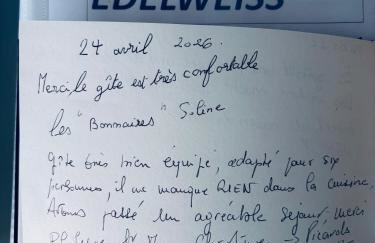 EDELWEISS
24 avril 2026.
Merci, le gîte est très confortable
Soline
les "Bonnaires"
gîte très bien équipé, adapté pour six
personnes, il ne manque RIEN dans la cuisine,
Avons passé un agréable séjour, merci
Picards